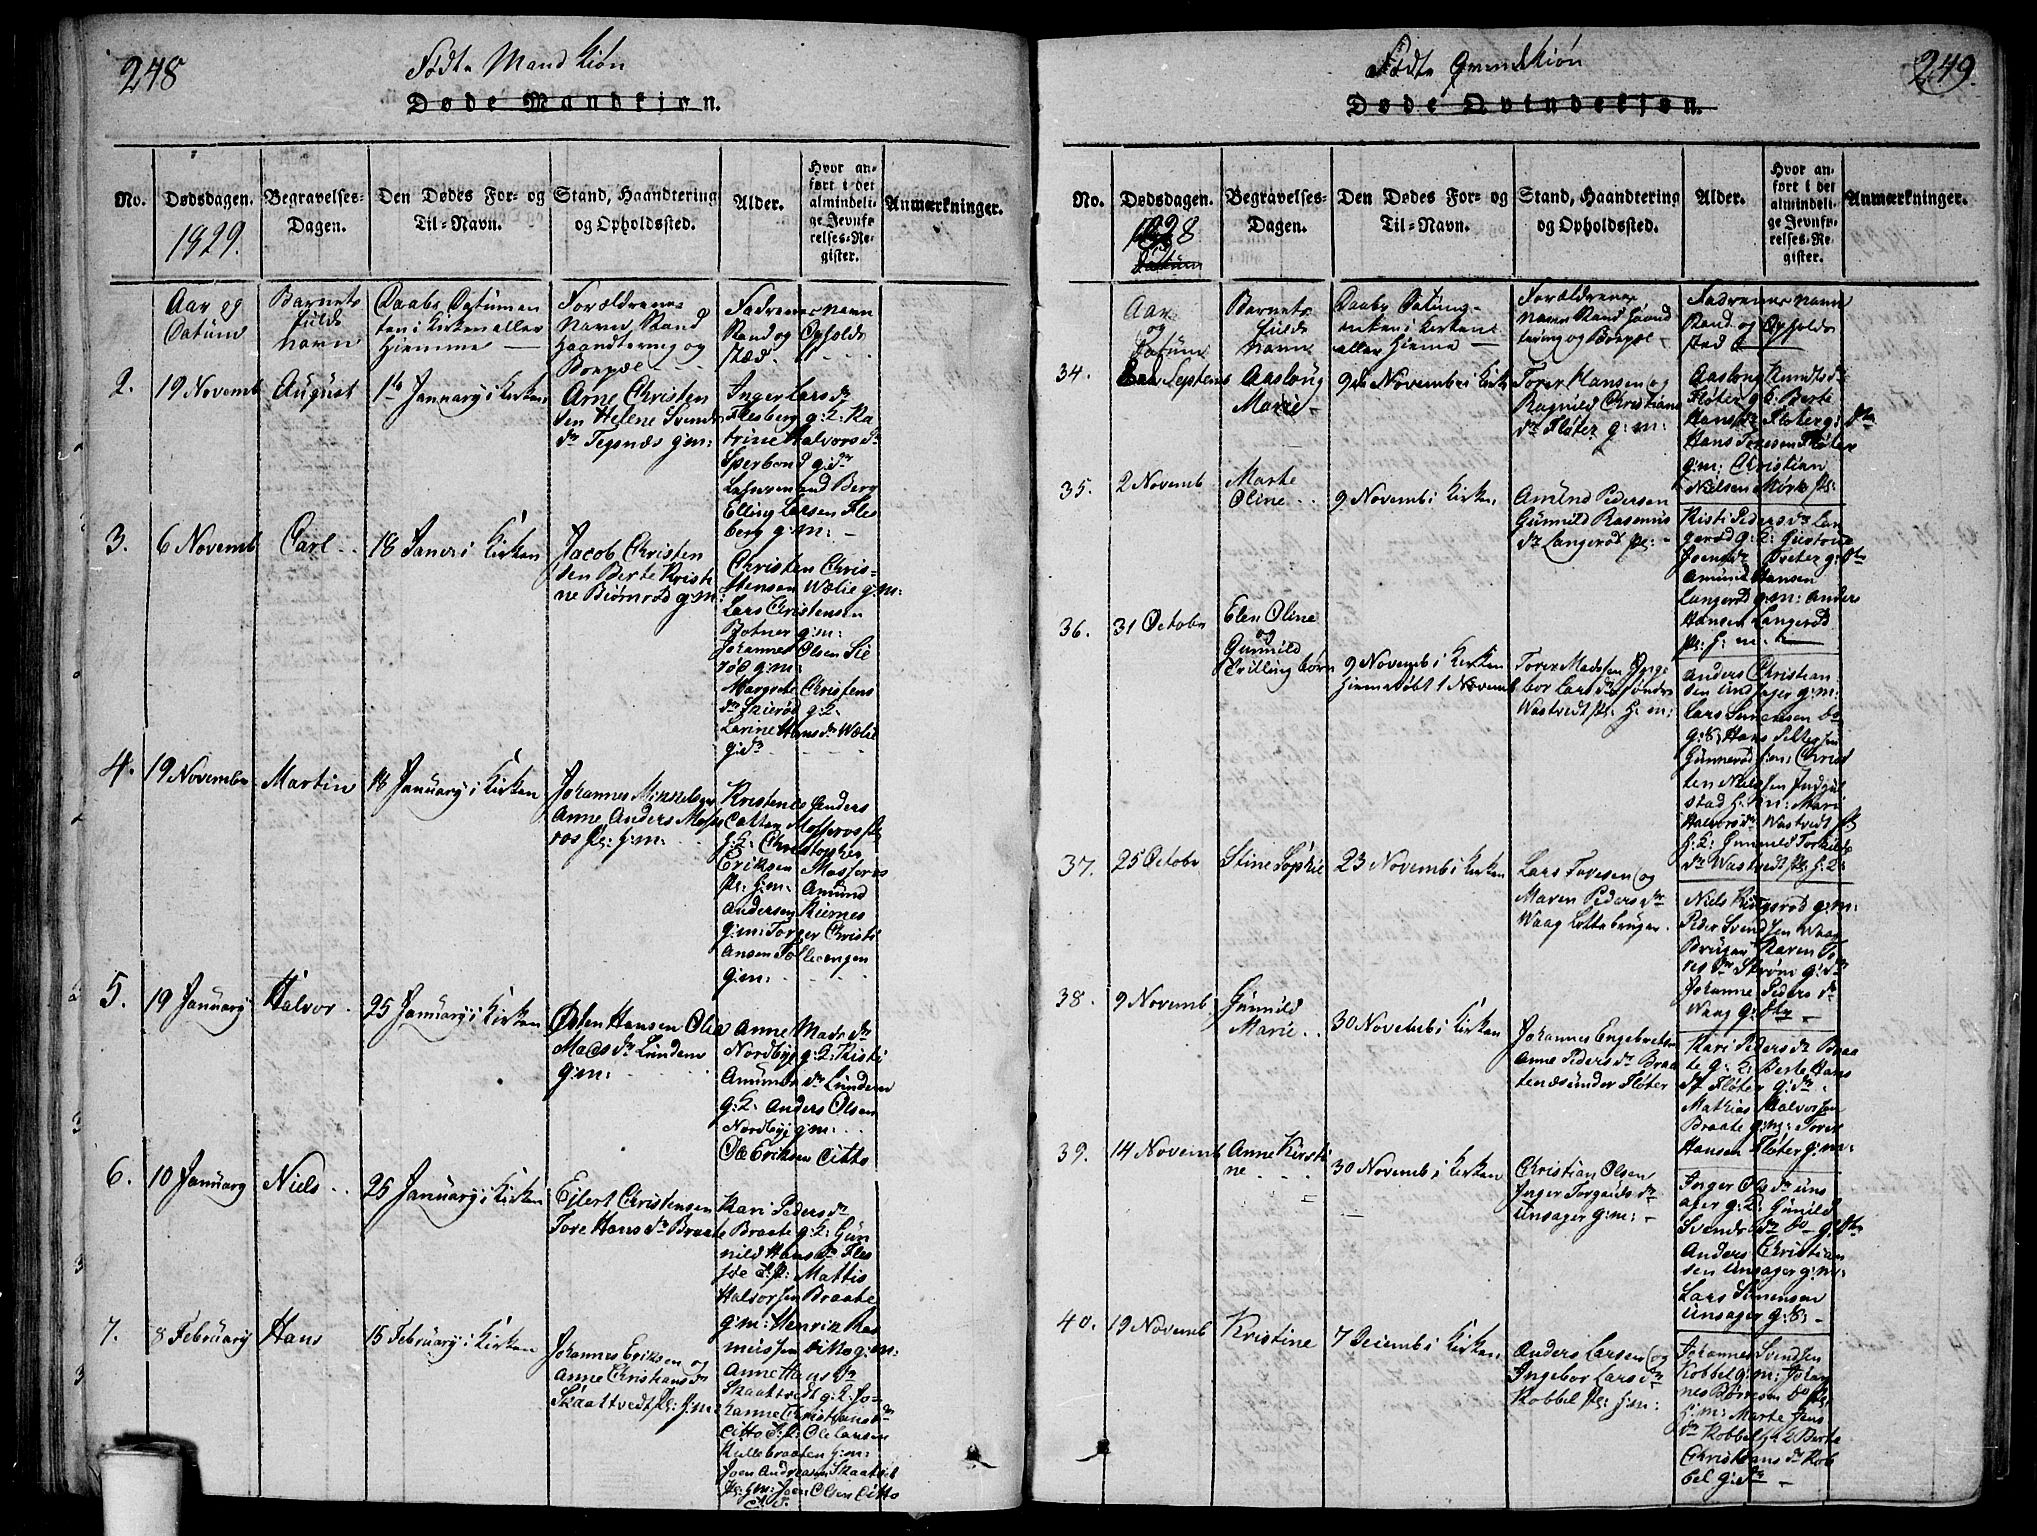 248
Fødte Mandkiøn
Døde Mandkjøn.
No.
Dødsdagen.
1829.
Begravelses-
Dagen.
Den Dødes For- og
Til-Navn.
Stand, Haandtering
og Opholdssted.
Alder.
Hvor an-
ført i det
almindeli-
ge Jevnfø-
relses-Re-
gister.
Anmærkninger.
Aar og
Datum
Barnets
fulde
Navn
Daabs Datumen
ten i Kirken eller
Hiemme
Forældrenes
Navn, Stand
Haandtering og
Bopæl
Faderenes Navn
Stand og Opholds
stæd
2.
19 Novemb
August
1te January i Kirken
Arne Christen
sen Helene Svends
dr Tegsnæs g:m:
Inger Lars dr
Flesberg g:k: Ka
trine Halvors dr
Sperbond g:dr
Berg
Elling Larsen Fles
berg g:m:
3.
6 Novemb
Carl
18 Janri i Kirken
Jacob Christen
sen Berte Kristi
ne Biørnrød g:m:
Christen Chris=
tensen Wælie g:m:
Lars Christensen
Botner g:m:
Johannes Olsen Sie
rød g:m:
Margrete Christens
dr Skierød g:k:
Larine Hans dr Wælie
g:dr
4.
19 Novembr
Martin
18 January i Kirken
Johannes Mikkelsen
Anne Anders Moss
ros pl: h:m:
Kristense Anders
Catten Mosseros pl
h:k: Christopher
Eriksen Mosseros
pl: h:m: Amund
Andersen Kiernes
g:m: Torger Christi
ansen Follevangen
g:m:
5.
19 January
Halvor
25 January i Kirken
Østen Hansen Olia
Mads dr Lundem
g:m:
Anne Mads dr
Nordby g:k: Kisti
Amunds dr Lundem
g:k: Anders Olsen
Nordby g:m:
Ole Eriksen Citto
6.
10 January
Niels
25 January i Kirken
Ejlert Christensen
Tore Hans dr Braate
Kari Peders dr
Braate g:k: Gun
nild Hans dr Fles
sje T:p: Mattis
Halvorsen Braate
g:m: Henrik Ras
mussen Vik g:m:
7.
8 February
Hans
15 February i Kirken
Johannes Eriksen og
Anne Christians dr
Skaattvedt pl: h:m:
Anne Hans dr
Skaattvedt g:k: Jo-
hanne Christians dr
Citto T:p: Ole Larsen
Kullebraaten h:m:
Joen Andreasen Skaatvet
pl: h:m: Joen Olsen Citto
249.
Fødte Qvindkiøn
Døde Qvindekjøn.
No.
Dødsdagen.
1828
Datum
Begravelses-
Dagen.
Den Dødes For- og
Til-Navn.
Stand, Haandtering
og Opholdssted.
Alder.
Hvor an-
ført i det
almindeli-
ge Jevnfø-
relses-Re-
gister.
Anmærkninger.
Aar
og
Datum
Barnets
fulde
Navn
Daabs Datum
enten i Kirken
eller Hieme
Forældrenes
Navn Stand Haand
tering og Bopæl
Faderenes Navn
Stand og Opholds
sted
34.
Septemb
Aaslaug
Marie
9de Novemb i Kirk
Torer Hansen og
Ragnild Christians
dr Fløter g:m:
Aaslaug Knudts dr
Fløter g:k: Berte
Hans dr Fløter g: dtr
Hans Toresen Fløter
g:m: Christian
Nilsen Mørk pl:
35.
2 Novemb
Marte
Oline
9 Novemb i Kirken
Amund Pedersen
Gunnild Rasmus
dr Langerød pl:
Kisti Peders dr Lan
gerød g:k: Gustave
Joens dr Treter g: dtr
Amund Hansen
Langerød g:m: Anders
Hansen Langerød
pl: h: m
36.
31 Octobr
Elen Oline
og
Gunnild
Tvilling børn
9 Novemb i Kirken
Hiemedøbt 1 Novemb
Torer Madsen Inge
bor Lars dr Søndre
Wastvedt pl: h:m:
Anders Christian
sen Undsager g:m:
Lars Simensen do
g:S: Hans Pillessen
Gunnerød h:m: Christ
ten Nielssen Indgul
stad h:m: Mari
Halvors dr Wastvedt pl
h:k: Gunnild Torkilds
dr Wastvedt pl: h:k:
37.
25 Octobr
Stine Sophie
23 Novemb i Kirken
Lars Toresen og
Maren Peders dr
Waag Lottsbruger
Niels Ringsrød g:m:
Peder Svendsen Waag
Bruger Karen To
res dr Strøm g:dr
Johanne Peders dr
Waag g: dtr
38.
9 Novemb
Gunnild
Marie
30 Novemb i Kirken
Johannes Engebretsen
Anne Peders dr Braa
tenæs under Fløter
Kari Peders dr Braa
te g:k: Berte Hans
dr Fløter g:dr
Mathias Halvorsen
Braate g:m: Torer
Hansen Fløter g:m:
39.
14 Novemb
Anne Kirsti
ne
30 Novemb i Kirken
Christian Olsen
Inger Torgards dr
Unsager g:m:
Inger Ols dr Uns
ager g:k: Gunild
Svends dr do g: dtr
Anders Christian
sen Unsager g:m:
Lars Simensen
Unsager g:S:
40.
19 Novemb
Kristine
7 Decemb i Kirken
Anders Larsen og
Ingebor Lars dr
Kobbel pl: h:m:
Johannes Svendsen
Kobbel g:m: Johan
nes Børresen do pl:
h:m: Marte Jens
dr Kobbel h:k Berte
Christians dr Kob
bel g:dr